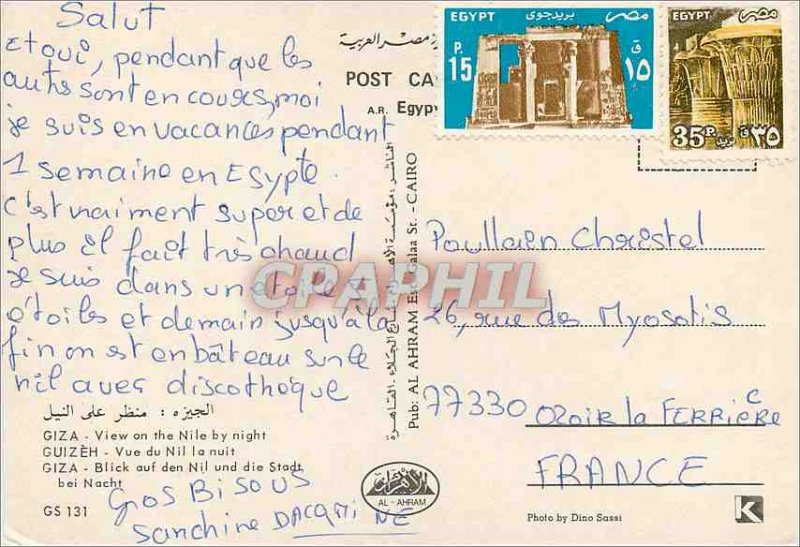 Salut
Et oui, pendant que les
autres sont en cours, moi
je suis en vacances pendant
1 semaine en Egypte.
c'est vraiment super et de
plus il fait très chaud
je suis dans un
étoiles et demain jusqu'à la
fin on est en bâteau sur le
nil avec discothèque
الجيزه : منظر على النيل
GIZA - View on the Nile by night
GUIZÈH - Vue du Nil la nuit
GIZA - Blick auf den Nil und die Stadt
bei Nacht
GS 131
Gros Bisous
Sandrine
AL-AHRAM
مصر العربية
POST CA
A.R. Egypt
Pub: AL AHRAM Est. Galaa St. - CAIRO
EGYPT
بريد جوى
مصر
P.
15
ق
١٥
EGYPT
مصر
35 P.
بريد
ق ٣٥
Poullain Christel
26, rue des Myosotis
77330 Ozoir la FERRIERE
FRANCE
K
Photo by Dino Sassi
CPAPHIL